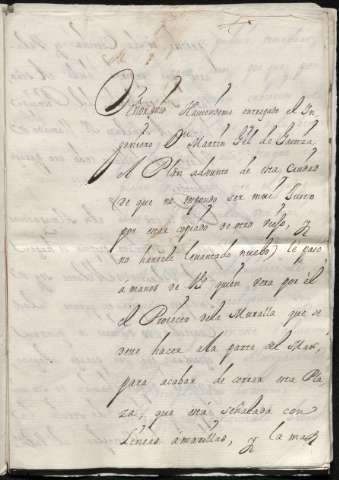 Haviendome entregado el In
geniero Dn Martin Gl de Gainza
el Plan adjunto de esta Ciudad
(de que no respondo ser muy Bueno
por estar copiado de otro viejo, y
no haverle levantado nuebo) le paso
á manos de V.S. quien vera por él
el Proyecto de la Muralla que se
deve hacer ala parte del Mar,
para acabar de cerrar esta Pla
za; que está señalada con
Lineas ámarillas, y la mas